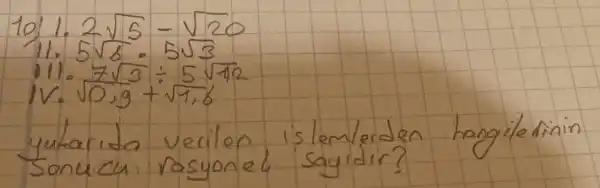 10) I. 2√5 - √20
II. 5√6 . 5√3
III. 7√3 ÷ 5√12
IV. √0,9 + √1,6
yukarıda verilen işlemlerden hangilerinin
Sonucu rasyonel sayıdır?